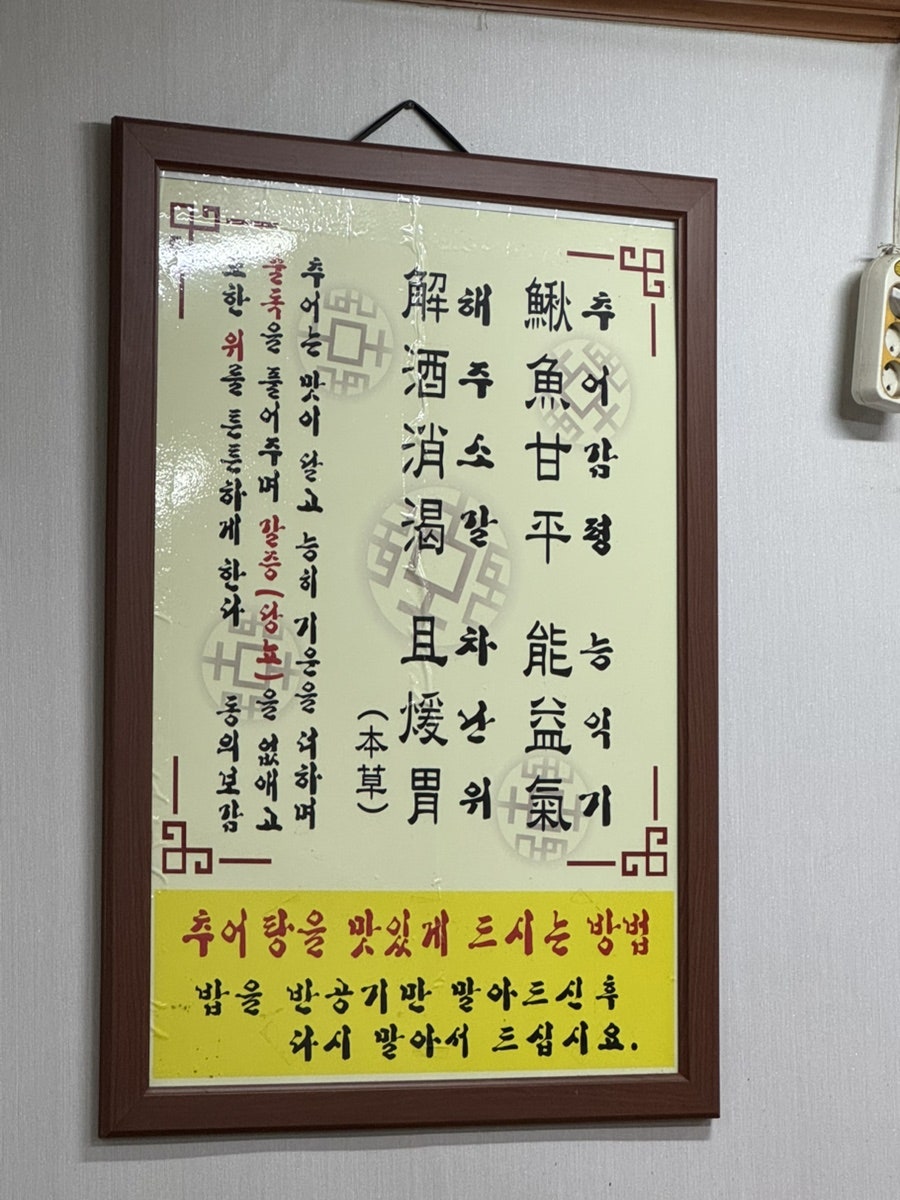 추어감평 능익기
鰍魚甘平 能益氣
해주소갈 차난위
解酒消渴 且煖胃
(本草)
추어는 맛이 달고 능히 기운을 더하며
술독을 풀어주며 갈증(당뇨)을 없애고
또한 위를 튼튼하게 한다 동의보감
추어탕을 맛있게 드시는 방법
밥을 반공기만 말아드신후
다시 말아서 드십시요.